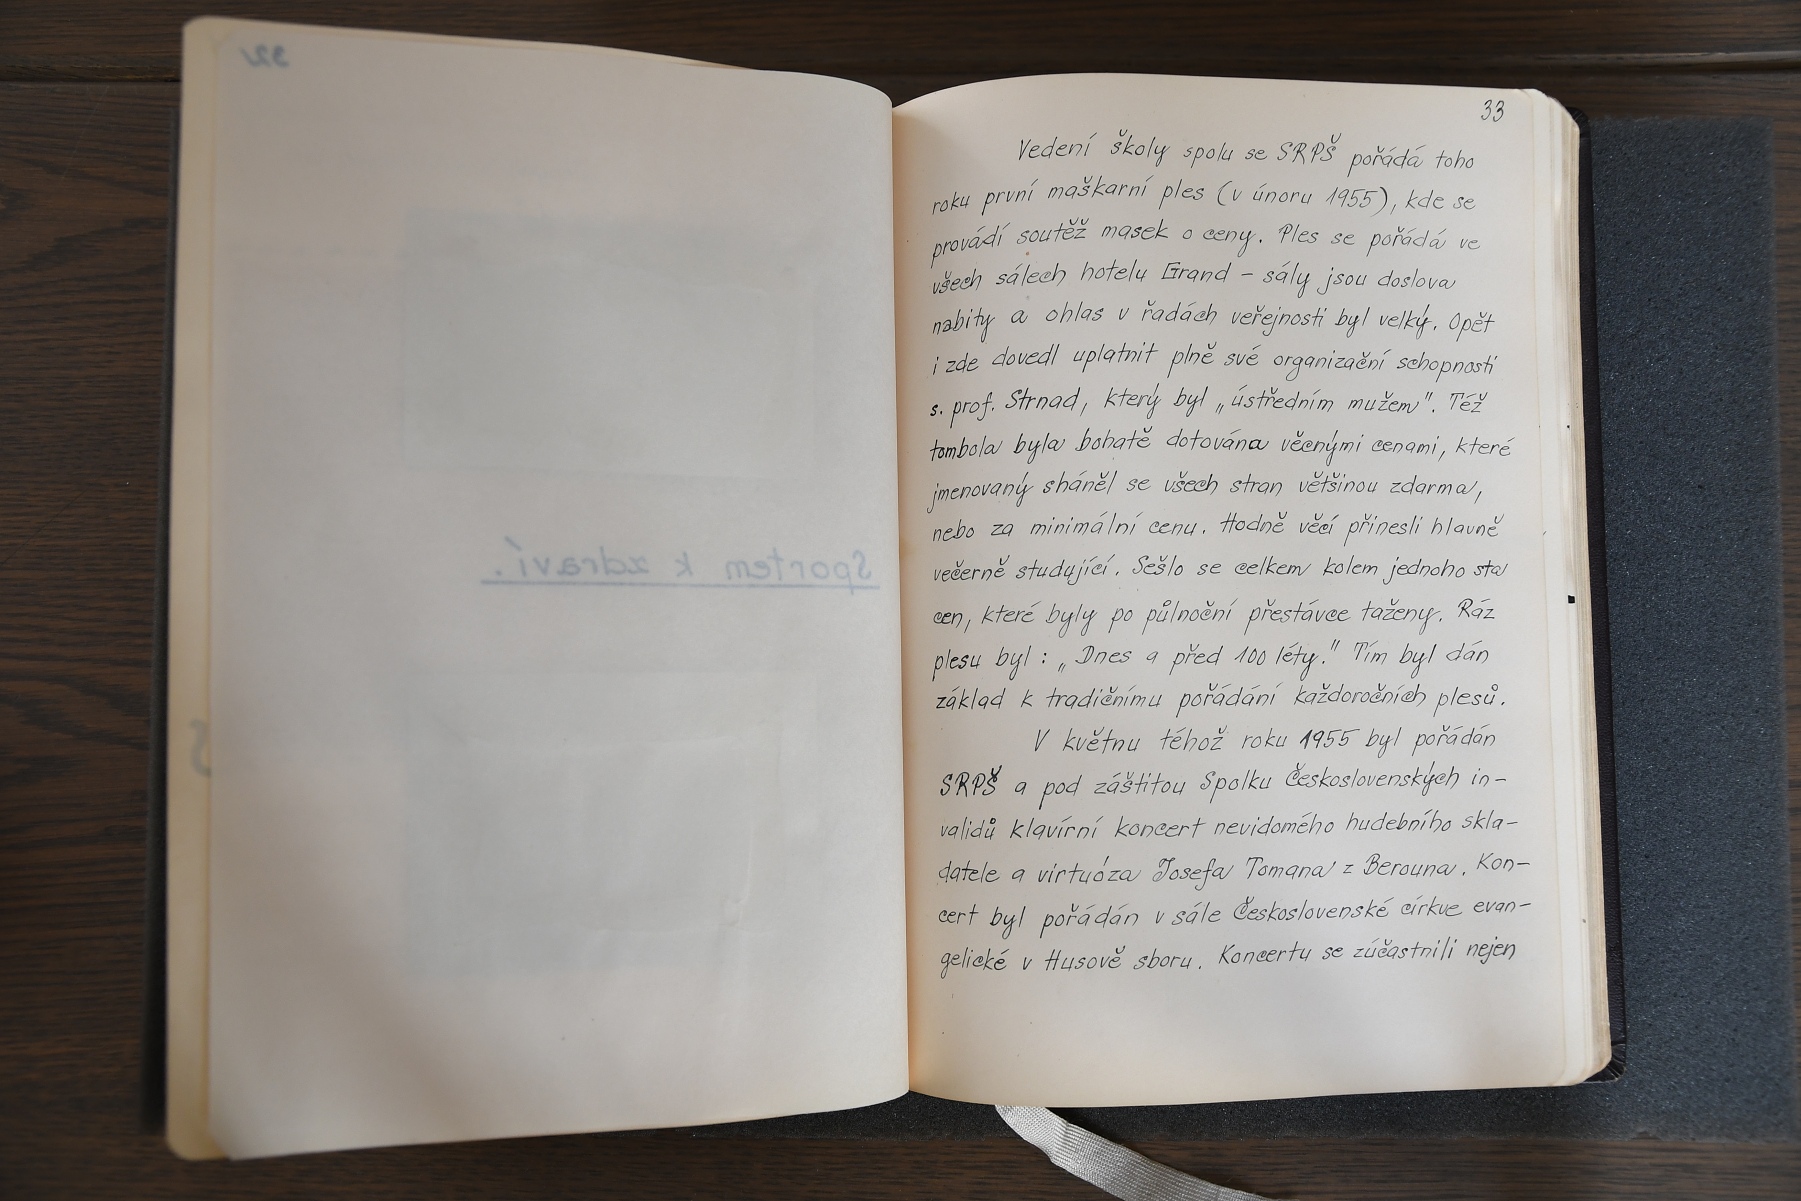 32
Sportem k zdraví.
33
Vedení školy spolu se SRPŠ pořádá toho
roku první maškarní ples (v únoru 1955), kde se
provádí soutěž masek o ceny. Ples se pořádá ve
všech sálech hotelu Grand – sály jsou doslova
nabity a ohlas v řadách veřejnosti byl velký. Opět
i zde dovedl uplatnit plně své organizační schopnosti
s. prof. Strnad, který byl „ústředním mužem". Též
tombola byla bohatě dotována věcnými cenami, které
jmenovaný sháněl se všech stran většinou zdarma,
nebo za minimální cenu. Hodně věcí přinesli hlavně
večerně studující. Sešlo se celkem kolem jednoho sta
cen, které byly po půlnoční přestávce taženy. Ráz
plesu byl: „Dnes a před 100 léty." Tím byl dán
základ k tradičnímu pořádání každoročních plesů.
V květnu téhož roku 1955 byl pořádán
SRPŠ a pod záštitou Spolku Československých in-
validů klavírní koncert nevidomého hudebního skla-
datele a virtuóza Josefa Tomana z Berouna. Kon-
cert byl pořádán v sále Československé církve evan-
gelické v Husově sboru. Koncertu se zúčastnili nejen